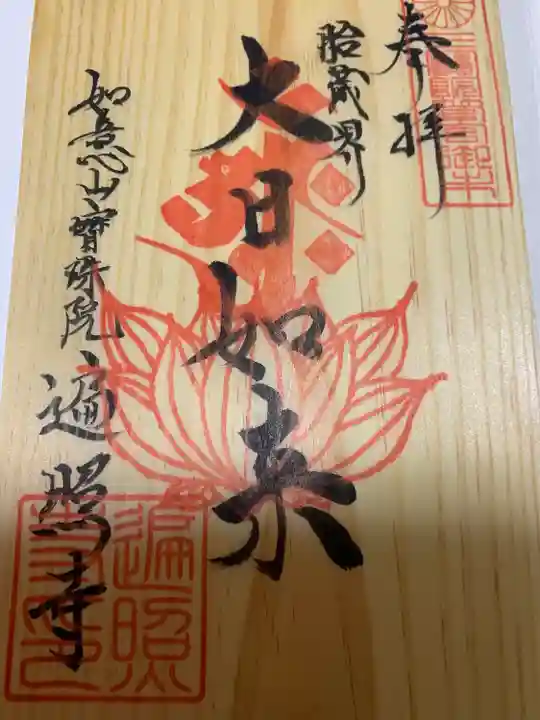 奉拝
胎蔵界
大日如来
如意山寶珠院
遍照寺
遍照